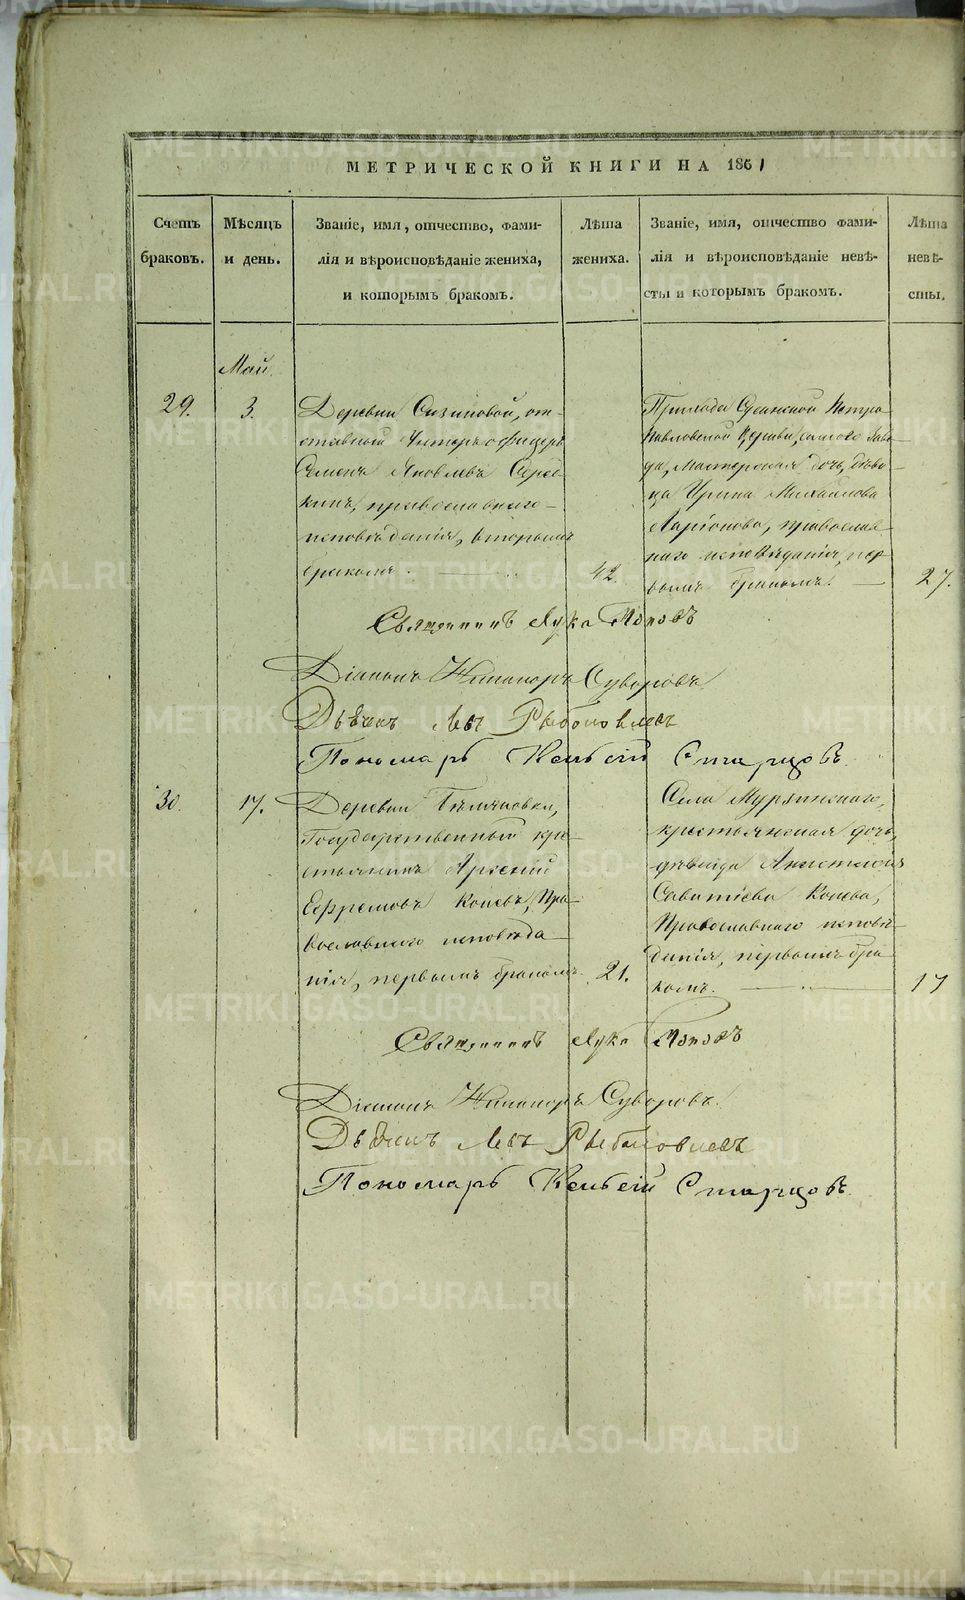 МЕТРИЧЕСКОЙ КНИГИ НА 1861
Счетъ браковъ.
Мѣсяцъ и день.
Званіе, имя, отчество, фами-
лія и вѣроисповѣданіе жениха,
и которымъ бракомъ.
Лѣта жениха.
Званіе, имя, отчество фами-
лія и вѣроисповѣданіе невѣ-
сты и которымъ бракомъ.
Лѣта невѣ-
сты.
Май.
29.
3.
Деревни Сизиковой, от-
ставный Унтеръ офицеръ
Семенъ Яковлевъ
православнаго
исповѣданія, вторымъ
бракомъ.
42.
Прихода Петро
Павловской Церкви, самого Заво-
да, Мастерская дочь, дѣви-
ца Ирина Михайлова
Ларіонова, православ
наго исповѣданія, пер
вымъ бракомъ.
27.
Священникъ Лука Поповъ
Діаконъ Никаноръ Суворовъ
Дьячекъ Левъ Рыболовлевъ
Пономарь Старцовъ
30.
17.
Деревни
Государственный кре
стьянинъ Арсений
Ефремовъ Коневъ, Пра
вославнаго исповѣда
нія, первымъ бракомъ
21.
Села Мурзинскаго,
крестьянская дочь,
дѣвица Анастасія
Саватіева Конева,
Православнаго исповѣ-
данія, первымъ бра
комъ.
17
Священникъ Лука Поповъ
Діаконъ Никаноръ Суворовъ.
Дьячекъ Левъ Рыболовлевъ
Пономарь Старцовъ
METRIKI.GASO-URAL.RU